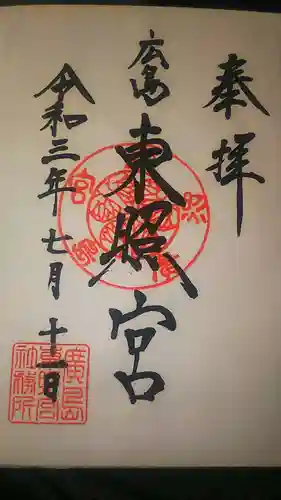 奉拝
広島
東照宮
令和三年七月十一日
廣島
東照宮
社務所